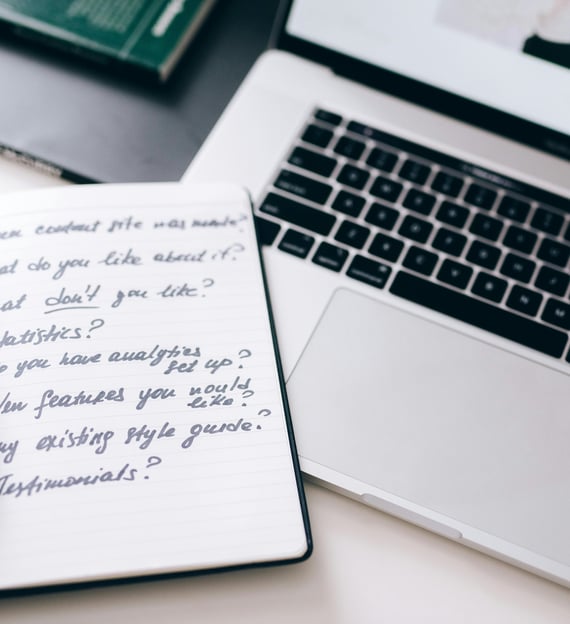 en content site was made?
at do you like about it?
at don't you like?
tatistics?
o you have analytics
set up?
ew features you would
like?
ny existing style guide?
Testimonials?